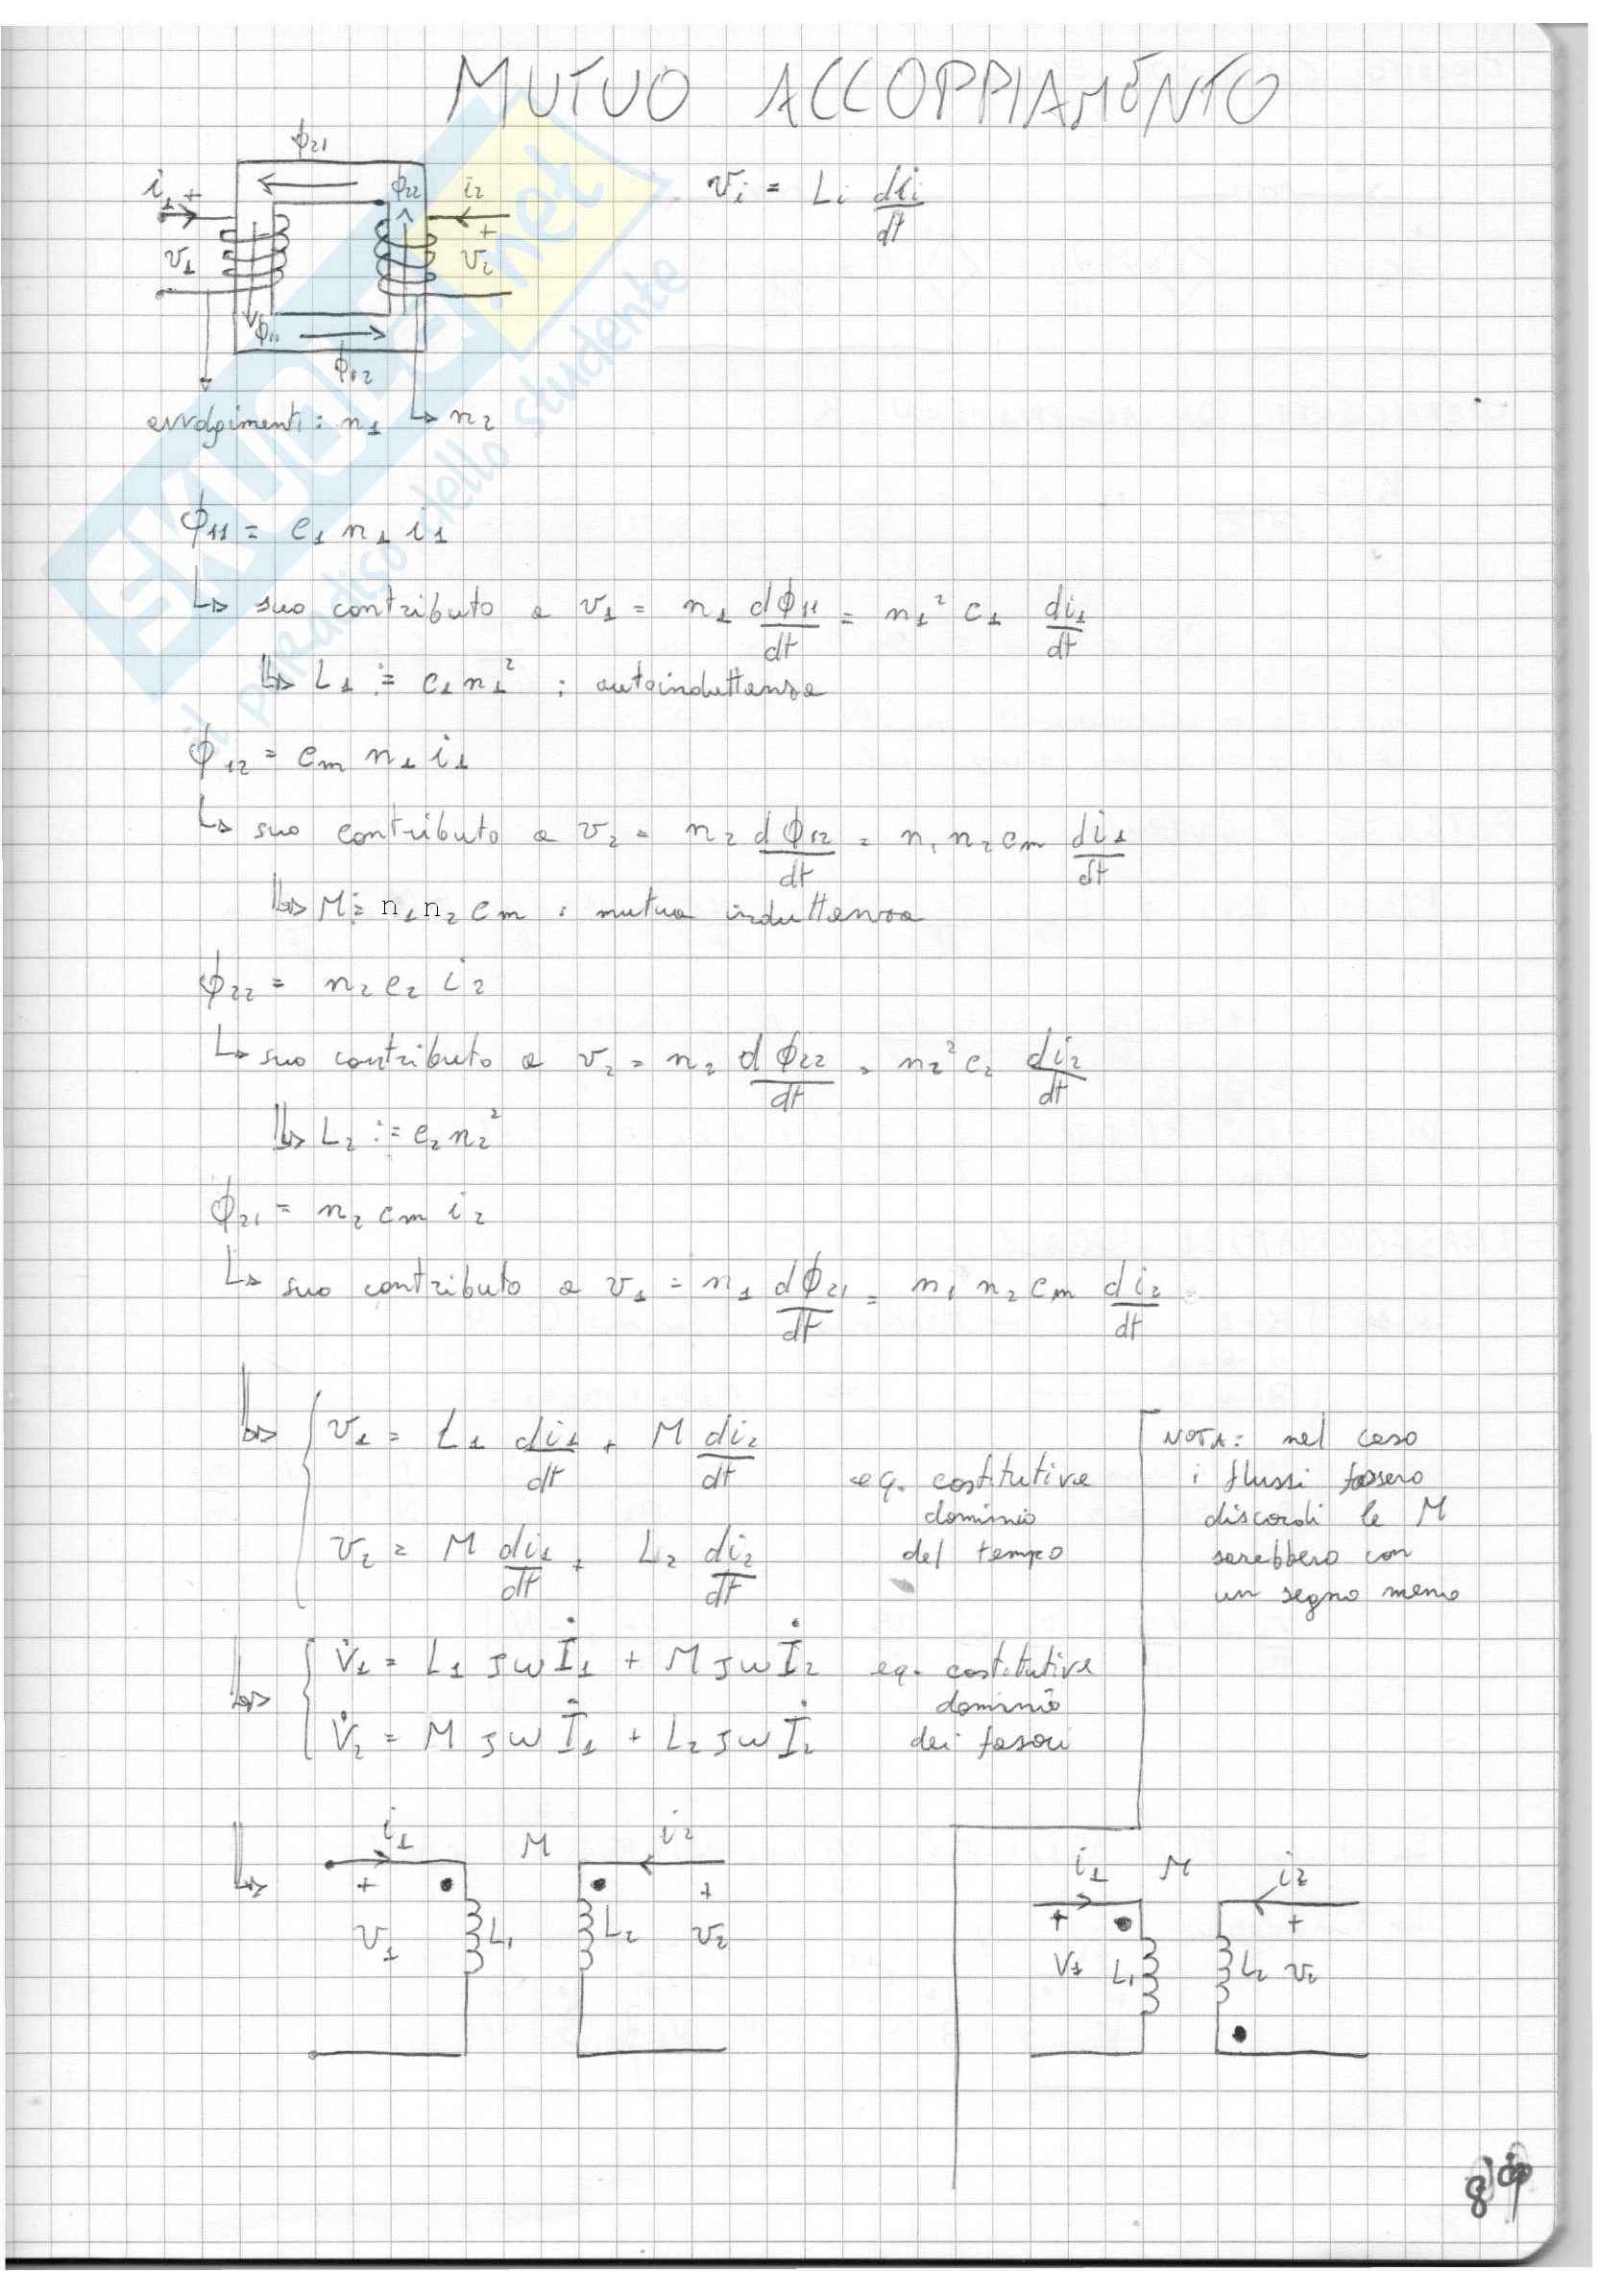 MUTUO ACCOPPIAMENTO
ϕ21
i1 + ϕ22 i2
+
v1 v2
ϕ11
ϕ12
vi = Li dii/dt
avvolgimenti: n1 ↳ n2
ϕ11 = c1 n1 i1
↳ suo contributo a v1 = n1 dϕ11/dt = n1² c1 di1/dt
↳ L1 := c1 n1² : autoinduttanza
ϕ12 = cm n1 i1
↳ suo contributo a v2 = n2 dϕ12/dt = n1 n2 cm di1/dt
↳ M := n1 n2 cm : mutua induttanza
ϕ22 = n2 c2 i2
↳ suo contributo a v2 = n2 dϕ22/dt = n2² c2 di2/dt
↳ L2 := c2 n2²
ϕ21 = n2 cm i2
↳ suo contributo a v1 = n1 dϕ21/dt = n1 n2 cm di2/dt
↳ v1 = L1 di1/dt + M di2/dt
v2 = M di1/dt + L2 di2/dt
eq. costitutive
dominio
del tempo
NOTA: nel caso
i flussi fossero
discordi le M
sarebbero con
un segno meno
↳ V̇1 = L1 jω İ1 + M jω İ2
V̇2 = M jω İ1 + L2 jω İ2
eq. costitutive
dominio
dei fasori
i1 M i2
+ +
v1 L1 L2 v2
i1 M i2
+ +
V1 L1 L2 v2
SKUOLA.net
il paradiso dello studente